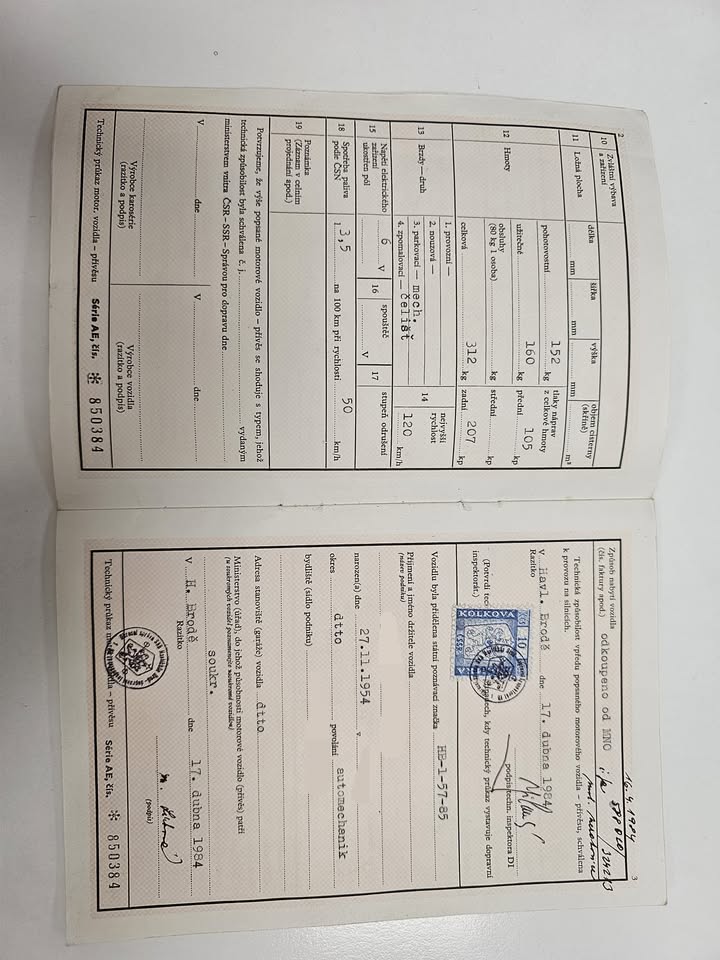 2
10 Zvláštní výbava a zařízení
11 Ložná plocha délka mm šířka mm výška mm objem cisterny (skříně) m³
12 Hmoty pohotovostní 152 kg tlaky náprav z celkové hmoty
užitečné 160 kg přední 105 kp
obsluhy (80 kg 1 osoba) kg střední kp
celková 312 kg zadní 207 kp
13 Brzdy — druh 1. provozní —
2. nouzová —
3. parkovací — mech.
4. zpomalovací — čelišť
14 nejvyšší rychlost 120 km/h
15 Napětí elektrického zařízení ukostřen pól 6 V 16 spouštěč V 17 stupeň odrušení
18 Spotřeba paliva podle ČSN 1 3,5 na 100 km při rychlosti 50 km/h
19 Poznámka (Záznam v celním projednání apod.)
Potvrzujeme, že výše popsané motorové vozidlo – přívěs se shoduje s typem, jehož
technická způsobilost byla schválena č. j. vydaným
ministerstvem vnitra ČSR – SSR – Správou pro dopravu dne
V dne V dne
Výrobce karosérie (razítko a podpis) Výrobce vozidla (razítko a podpis)
Technický průkaz motor. vozidla – přívěsu Série AE, čís. 850384
3
16. 4. 1984
Způsob nabytí vozidla (čís. faktury apod.) odkoupeno od MNO
Technická způsobilost vpředu popsaného motorového vozidla – přívěsu, schválena
k provozu na silnicích.
V Havl. Brodě dne 17. dubna 1984
Razítko
podpis techn. inspektora DI
KČS 10
KOLKOVÁ
(Potvrdí
kdy technický průkaz vystavuje dopravní
inspektorát.)
Vozidlu byla přidělena státní poznávací značka HB-1-57-85
Příjmení a jméno držitele vozidla
(název podniku)
narozen(a) dne 27.11.1954 v
okres dtto povolání automechanik
bydliště (sídlo podniku)
Adresa stanoviště (garáže) vozidla dtto
Ministerstvo (úřad), do jehož působnosti motorové vozidlo (přívěs) patří
(u soukromých vozidel poznamenejte soukromé vozidlo)
soukr.
V H. Brodě dne 17. dubna 1984
Razítko
(podpis)
Technický průkaz motor. vozidla – přívěsu Série AE, čís. 850384